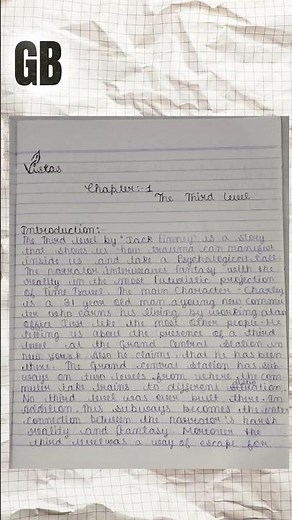 GB
Vistas
Chapter:- 1
The Third Level
Introduction:-
The Third level by "Jack Finney" is a story
that shows us how trauma can manifest
inside us and take a Psychological toll.
The narrator Interweaves fantasy with the
reality in the most futuristic projection
of Time Travel. The main Character Charley
is a 31 year old man a young new commu
ter who earns his living by working at an
office Just like the most other people. He
telling us about the presence of a third
level at the Grand Central Station in
new york. Also he claims that he has been
there. The Grand Central Station has sub
ways on two levels from where the com
muter take trains to different
No third level was ever built there. In
addition, This subways becomes the inter
connection between the narrator's harsh
reality and fantasy Moreover the
third level was a way of escape for